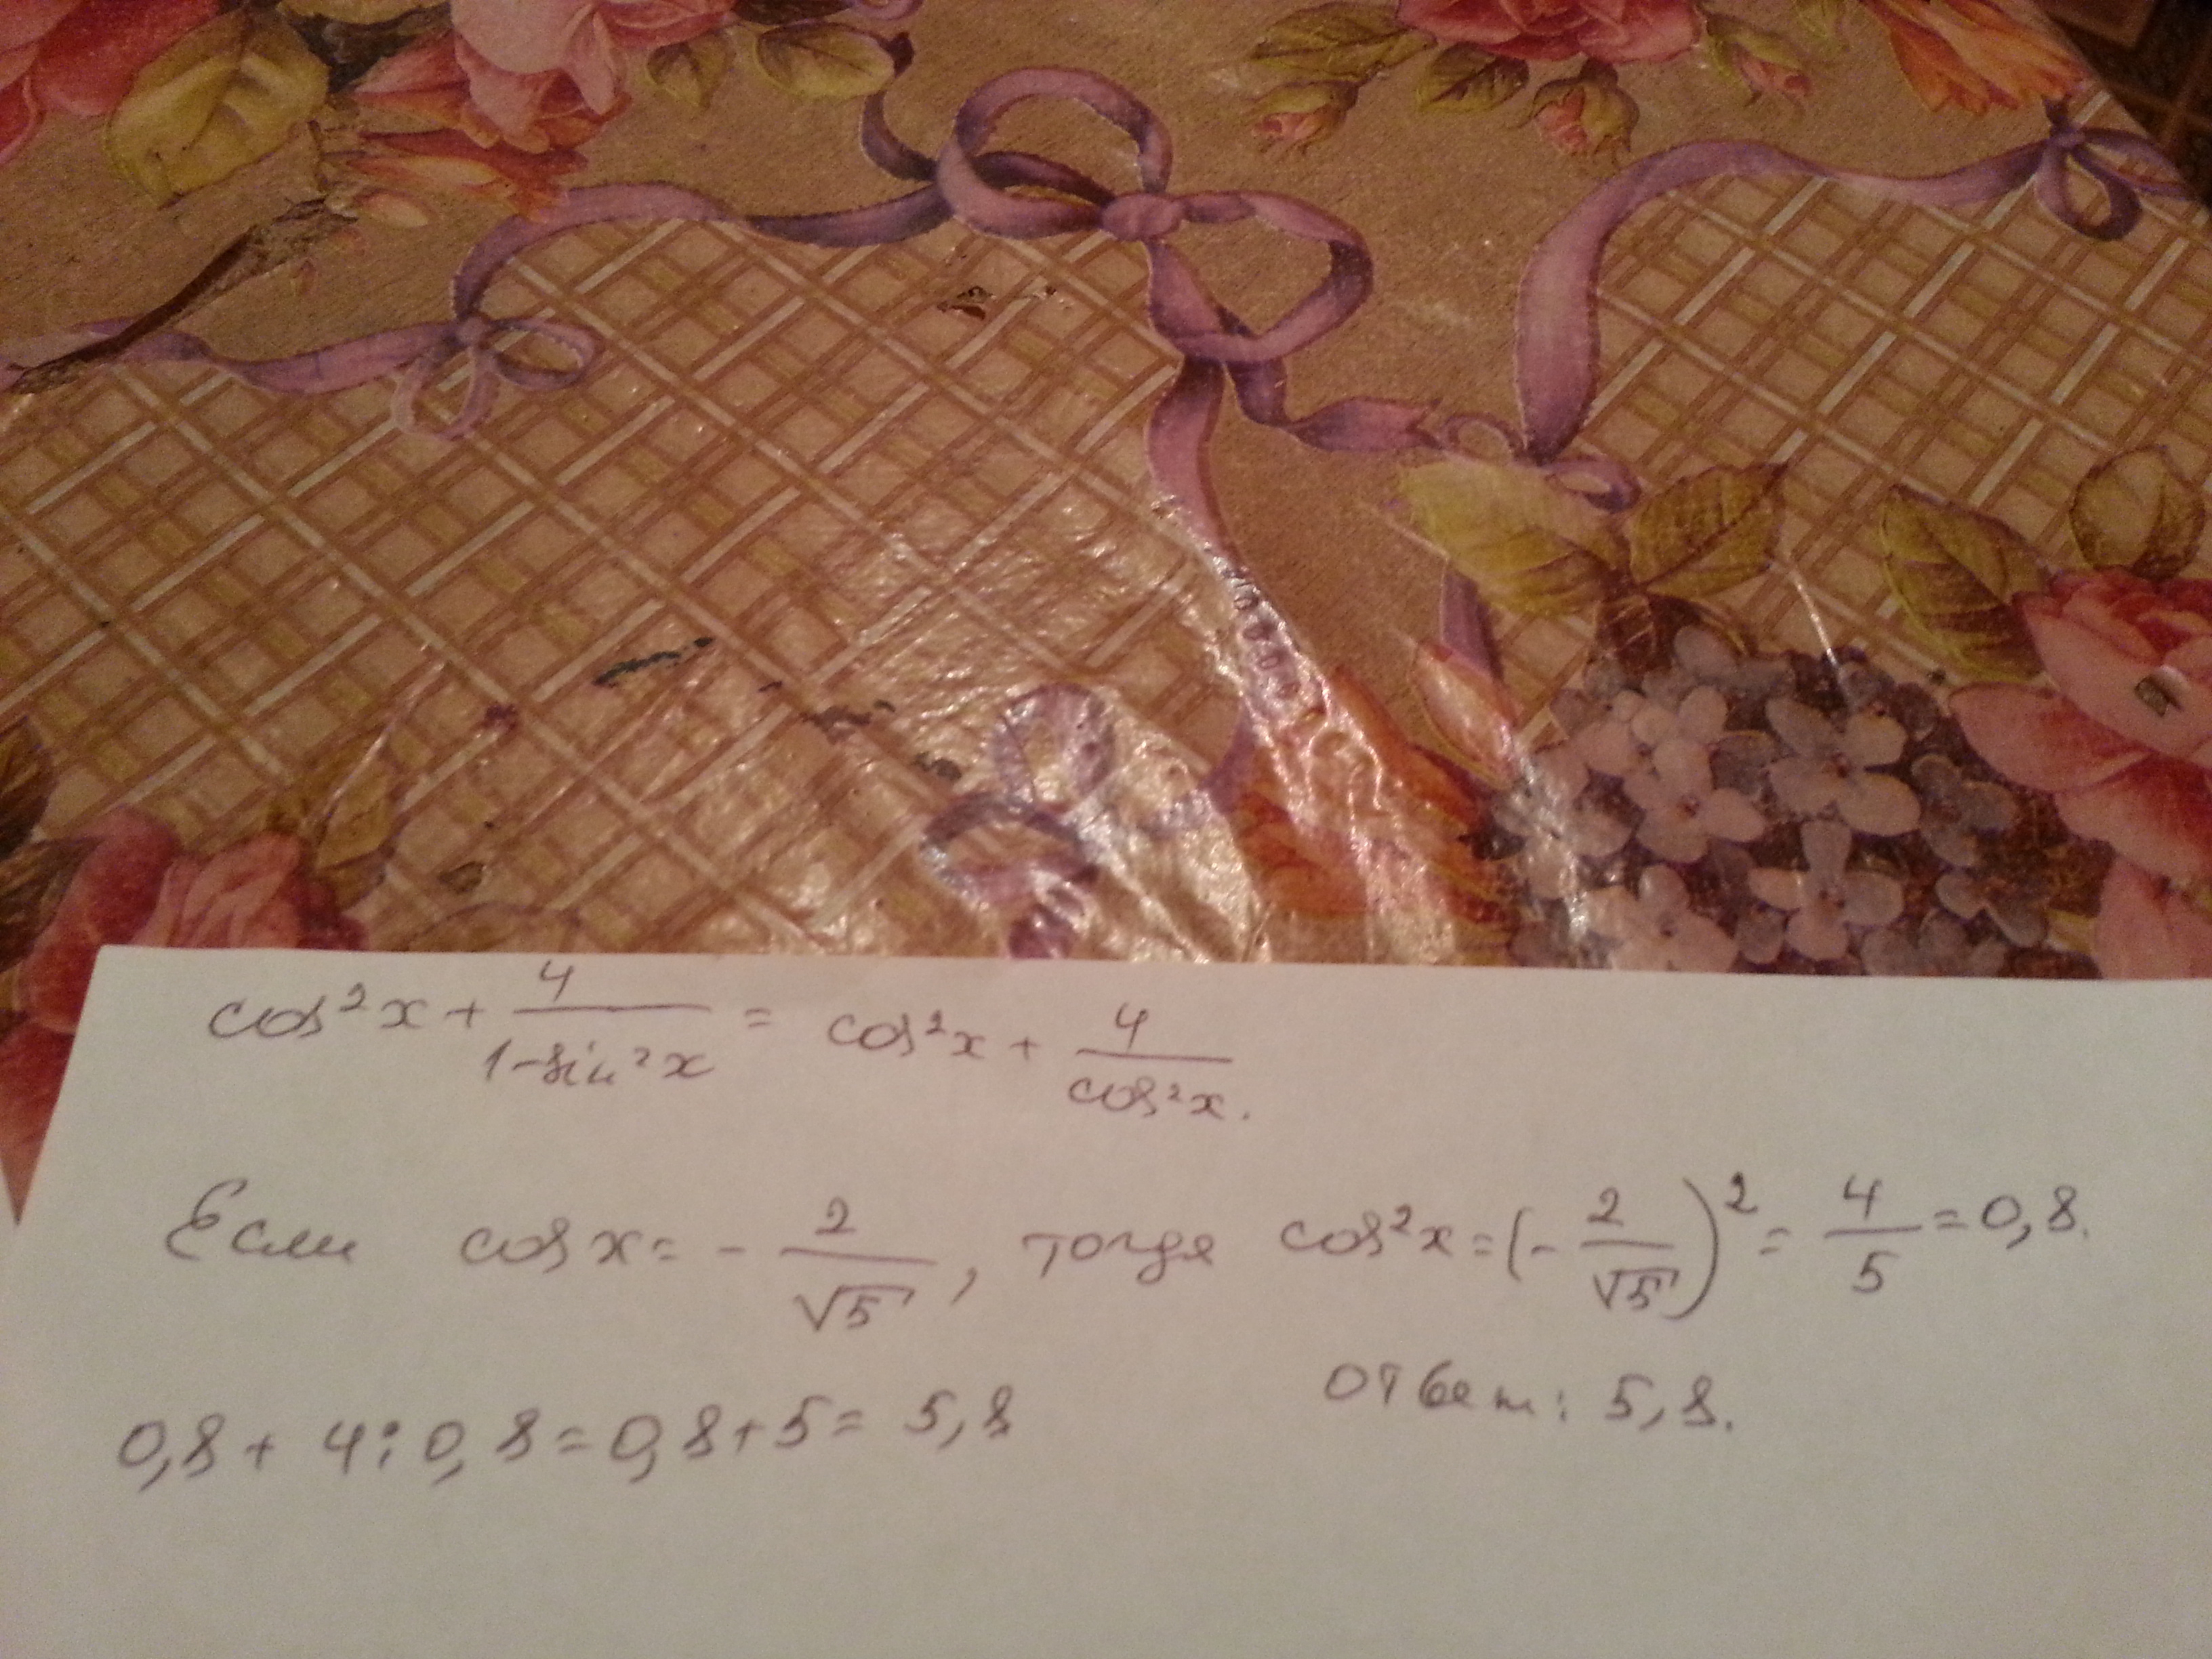 cos²x + 4/(1-sin²x) = cos²x + 4/cos²x.
Если cos x = - 2/√5, тогда cos²x = (- 2/√5)² = 4/5 = 0,8.
0,8 + 4 : 0,8 = 0,8 + 5 = 5,8
ответ: 5,8.